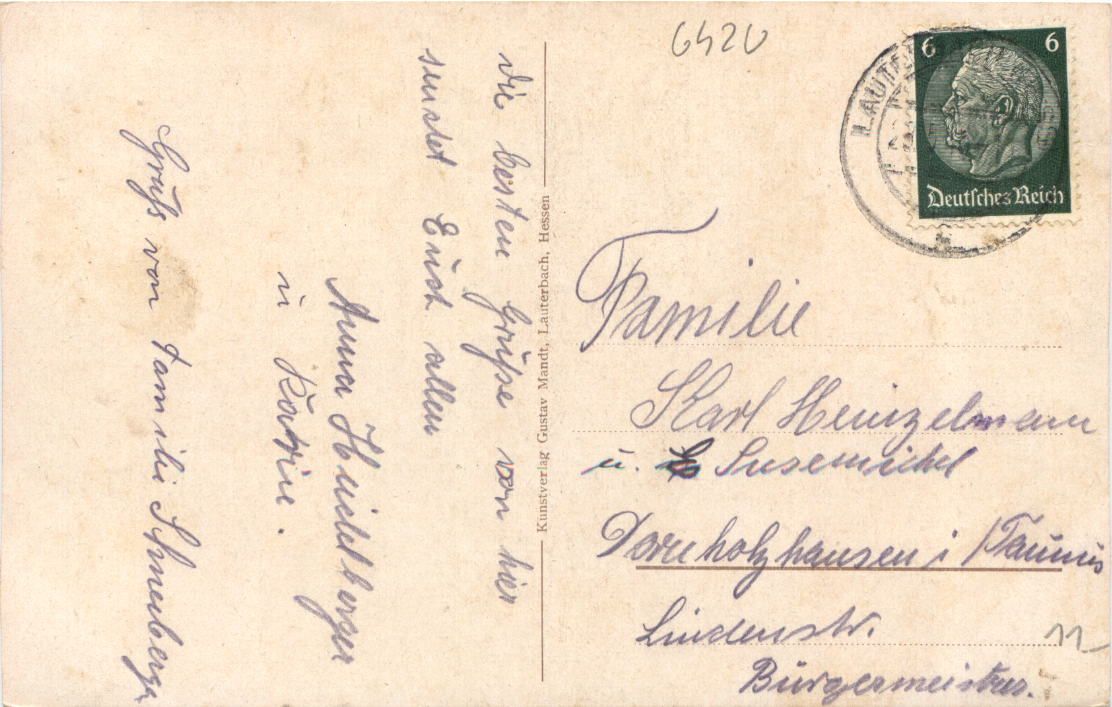 6420
6 6
Deutsches Reich
LAUTE
Die besten Grüße von hier
sendet Euch allen
Anna Heidelberger
u Katrin.
Gruß von Familie Schneeberger
Kunstverlag Gustav Mandt, Lauterbach, Hessen
Familie
Karl Heinzelmann
u. Susemichel
Dornholzhausen i/Taunus
Lindenstr.
11
Bürgermeister.